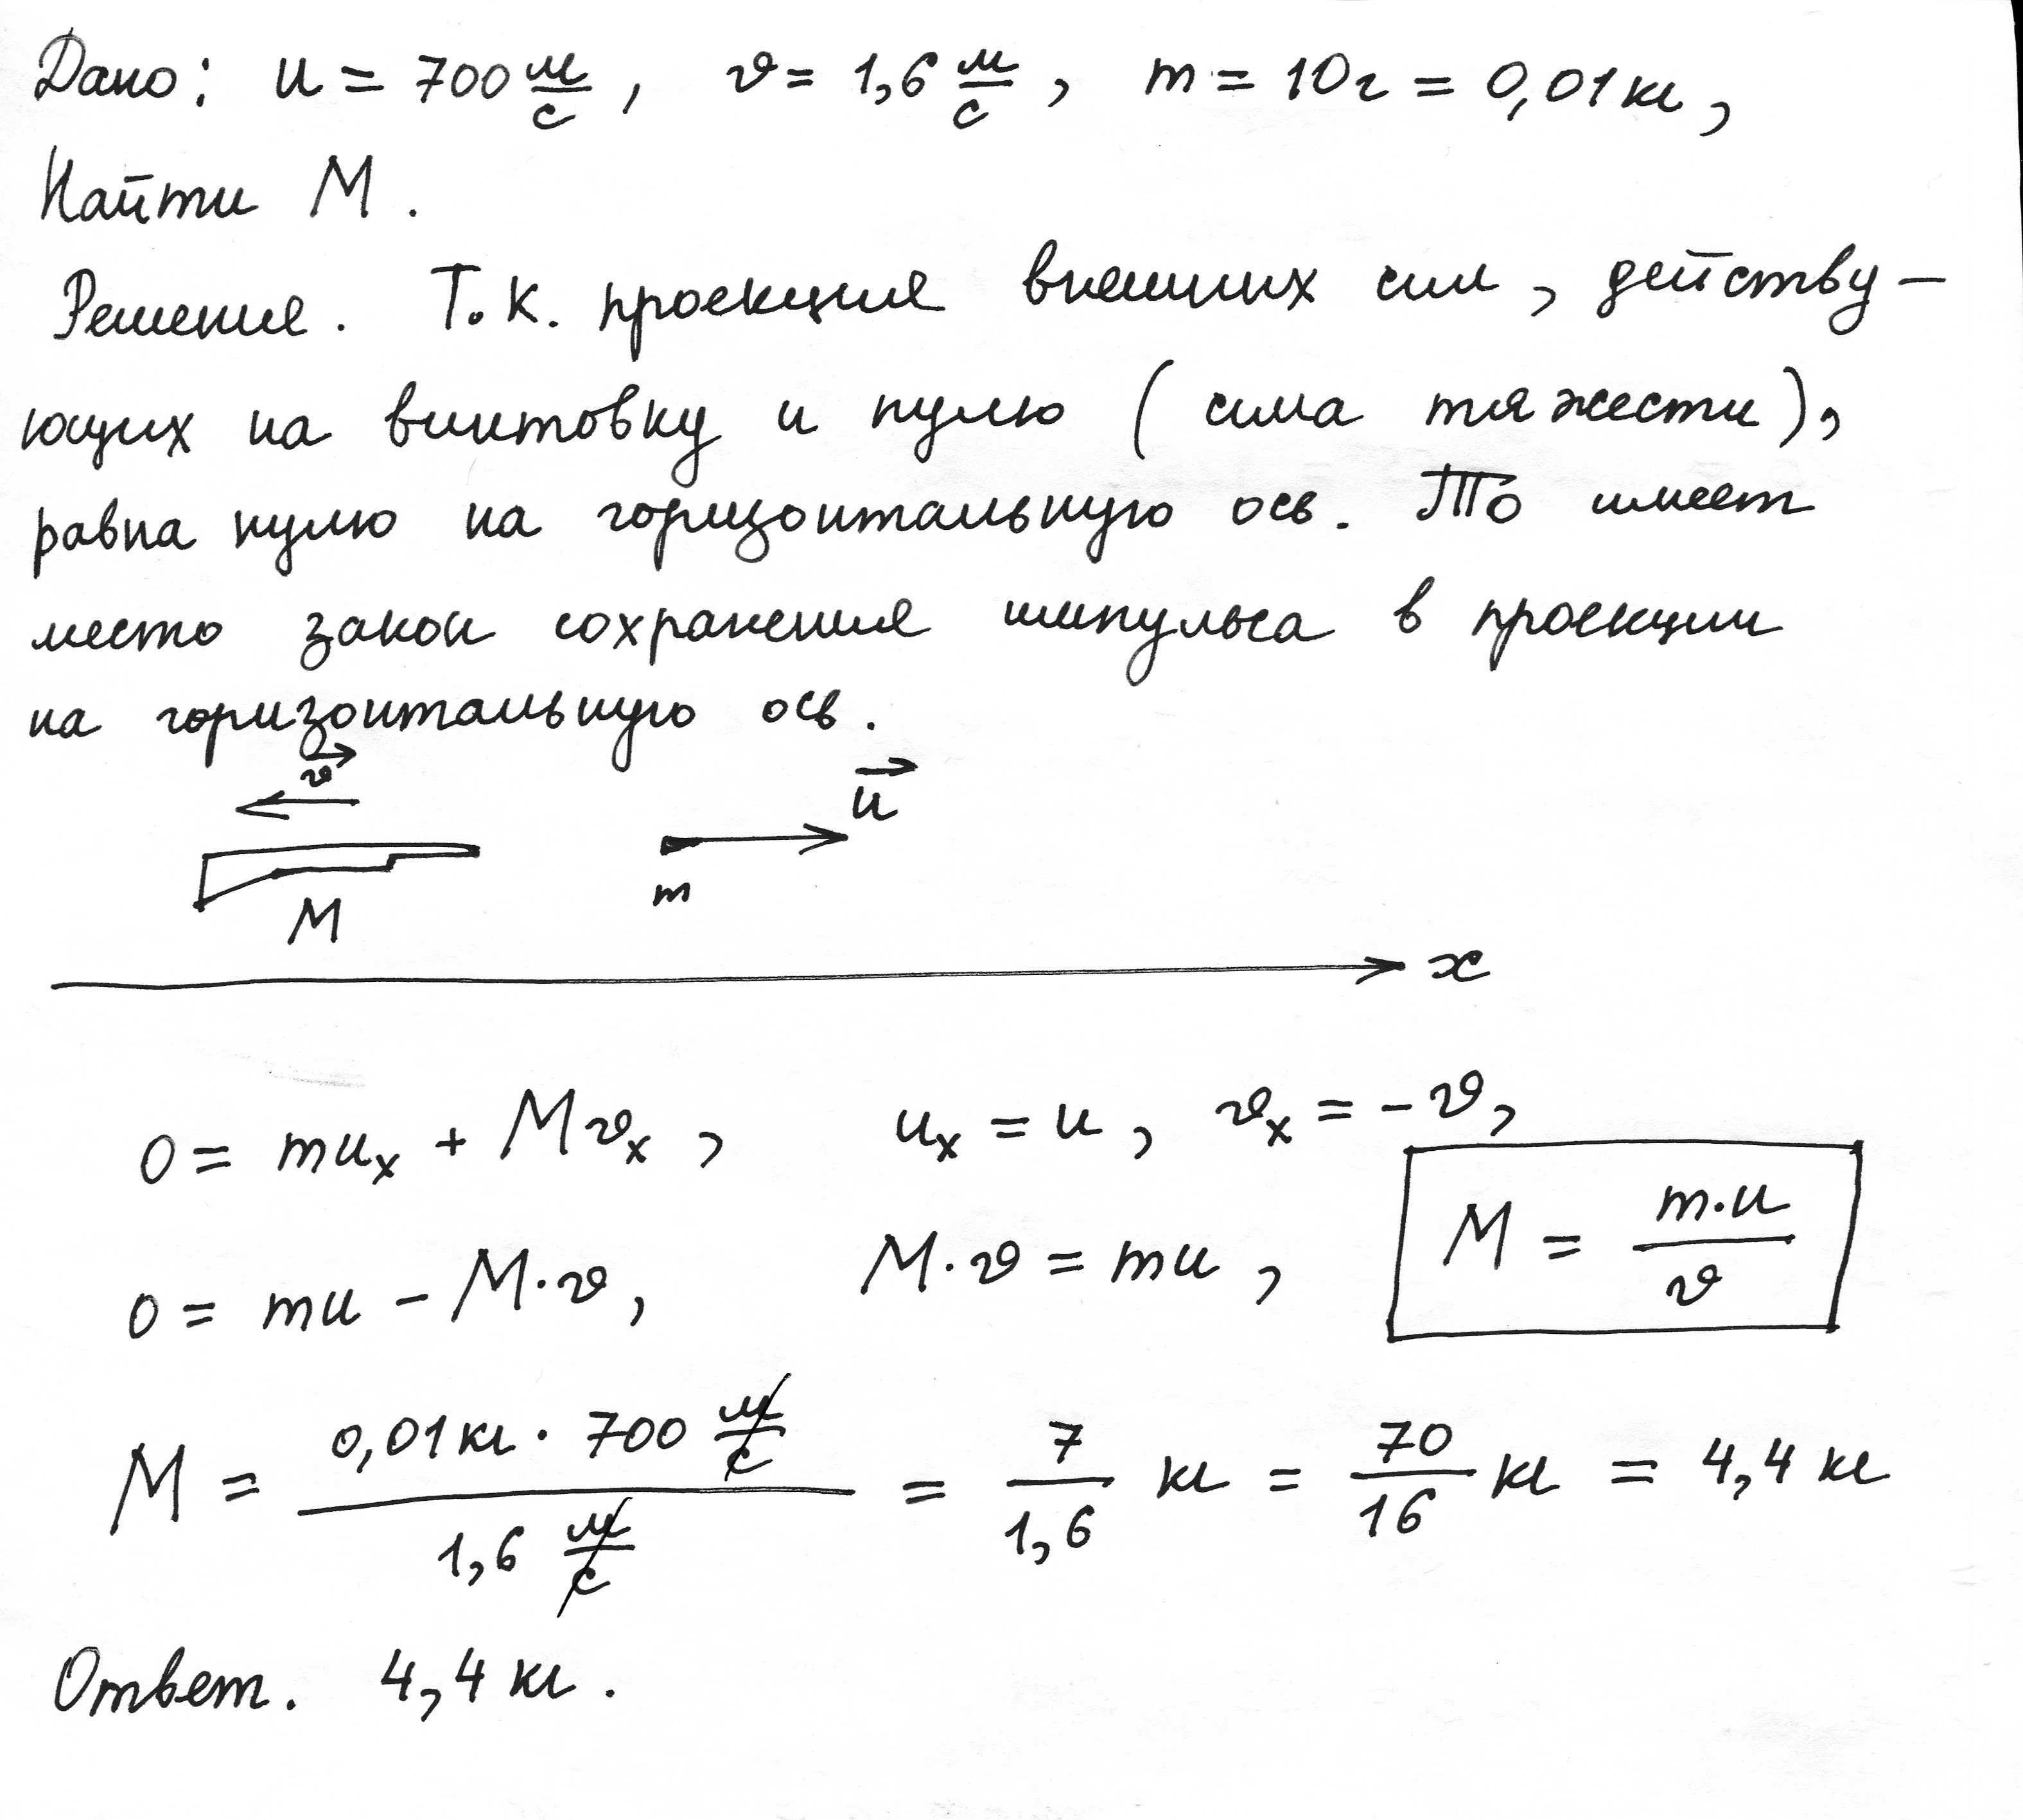 Дано: u = 700 м/с, v = 1,6 м/с, m = 10г = 0,01кг,
Найти M.
Решение. Т.к. проекция внешних сил, действу-
ющих на винтовку и пулю (сила тяжести),
равна нулю на горизонтальную ось. То имеет
место закон сохранения импульса в проекции
на горизонтальную ось.
v⃗
u⃗
M m
x
0 = muₓ + Mvₓ, uₓ = u, vₓ = -v,
0 = mu - M·v, M·v = mu, M = m·u/v
M = 0,01кг · 700 м/с / 1,6 м/с = 7/1,6 кг = 70/16 кг = 4,4 кг
Ответ. 4,4 кг.